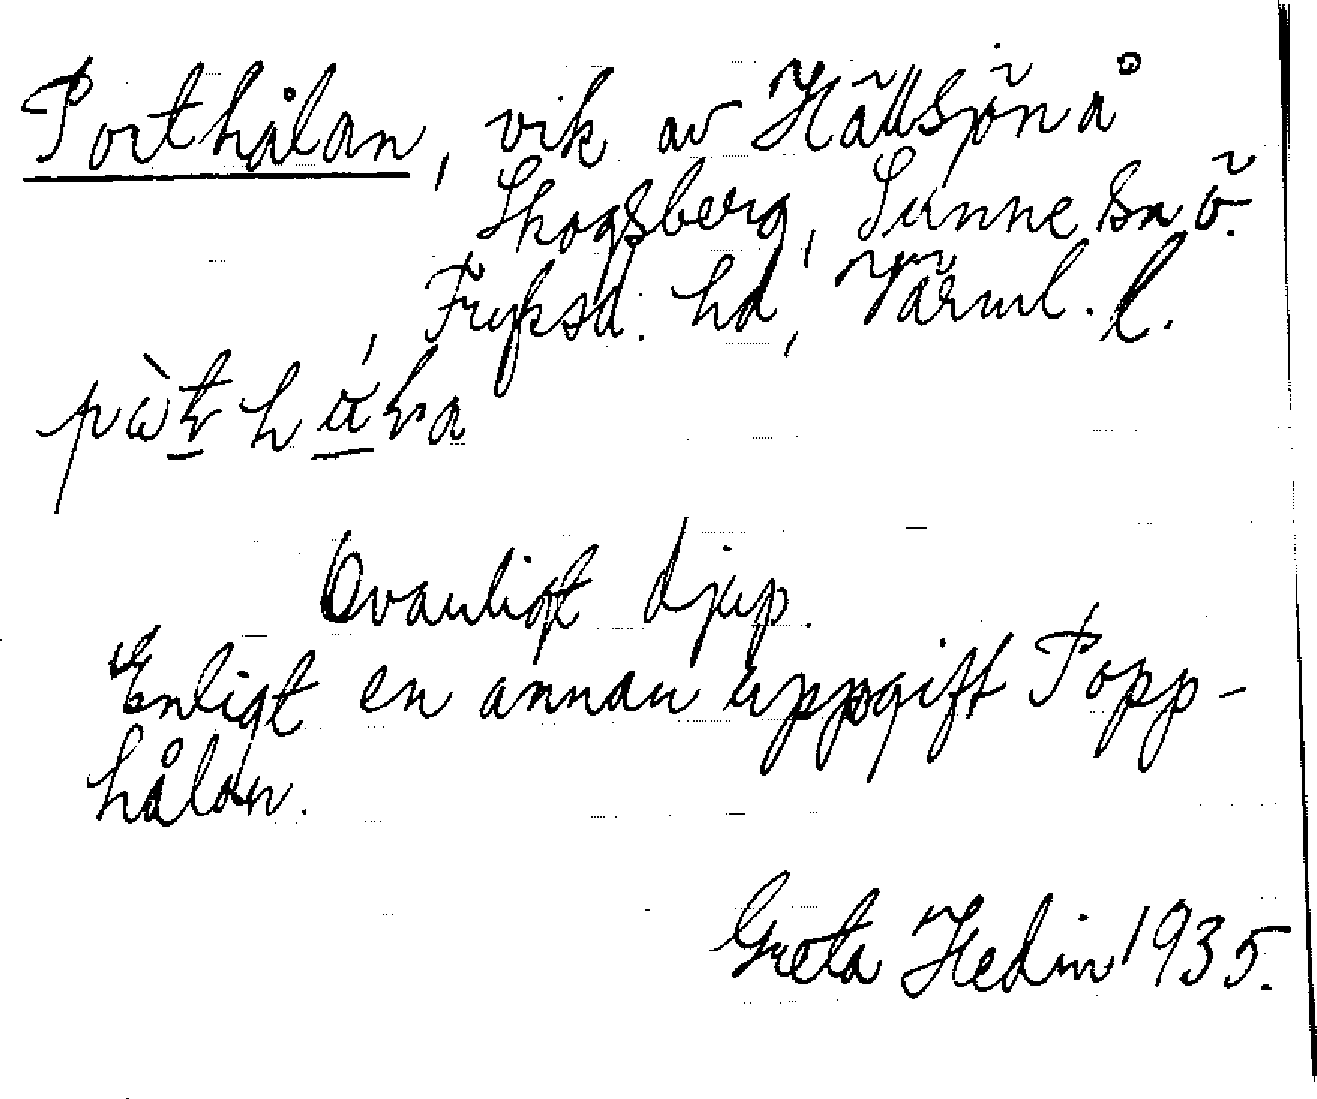 Porthålan, vik av Hällsjön å
Skogsberg, Sunne sn ö.
Fryksd. hd, Värml. l.
Ovanligt djup.
Enligt en annan uppgift Popp-
hålan.
Greta Hedin 1935.